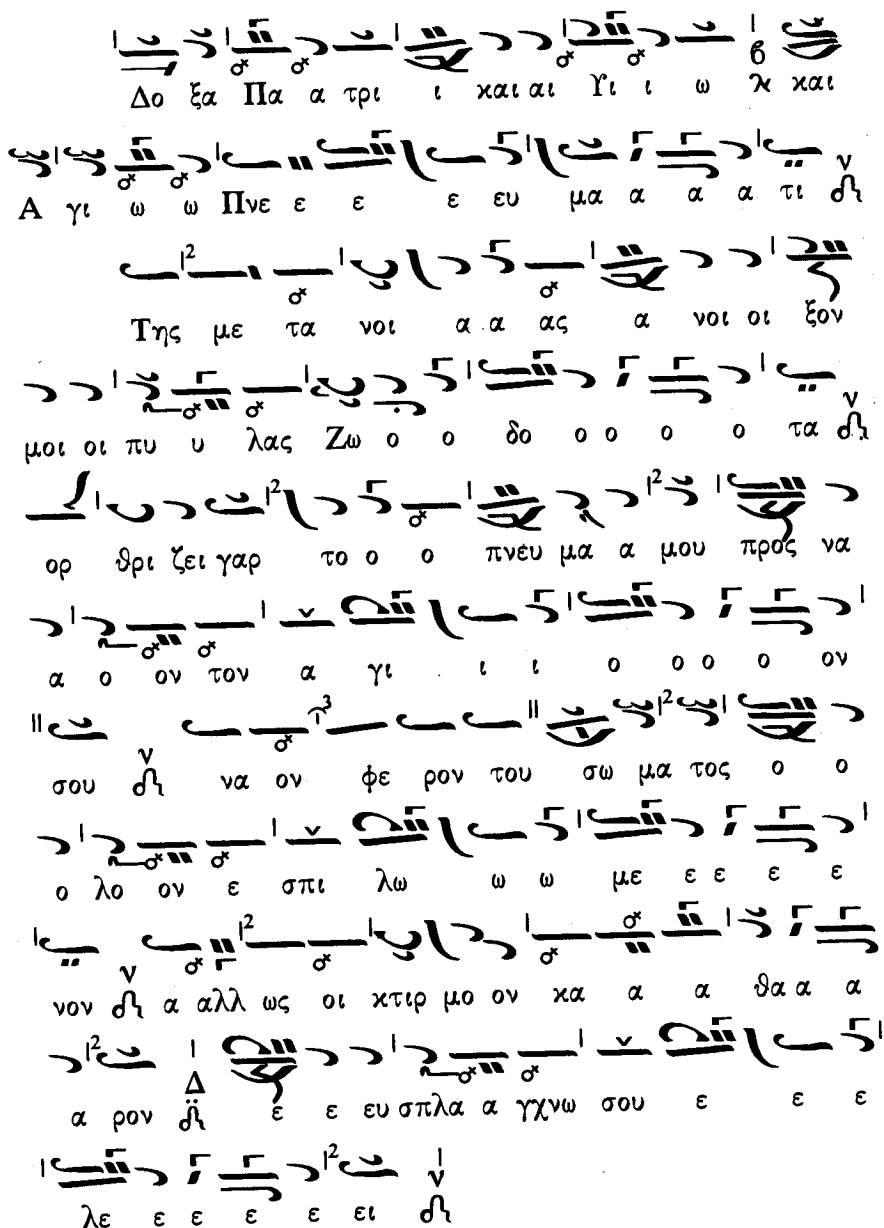 Δο ξα Πα α τρι ι και αι Υι ι ω και
Α γι ω ω Πνε ε ε ε ευ μα α α α τι
Της με τα νοι α α ας α νοι οι ξον
μοι οι πυ υ λας Ζω ο ο δο ο ο ο ο τα
ορ θρι ζει γαρ το ο ο πνευ μα α μου προς να
α ο ον τον α γι ι ι ο ο ο ο ον
σου να ον φε ρον του σω μα τος ο ο
ο λο ον ε σπι λω ω ω με ε ε ε ε
νον α αλλ ως οι κτιρ μο ον κα α α θα α α
α ρον ε ε ευ σπλα α γχνω σου ε ε ε
λε ε ε ε ε ει